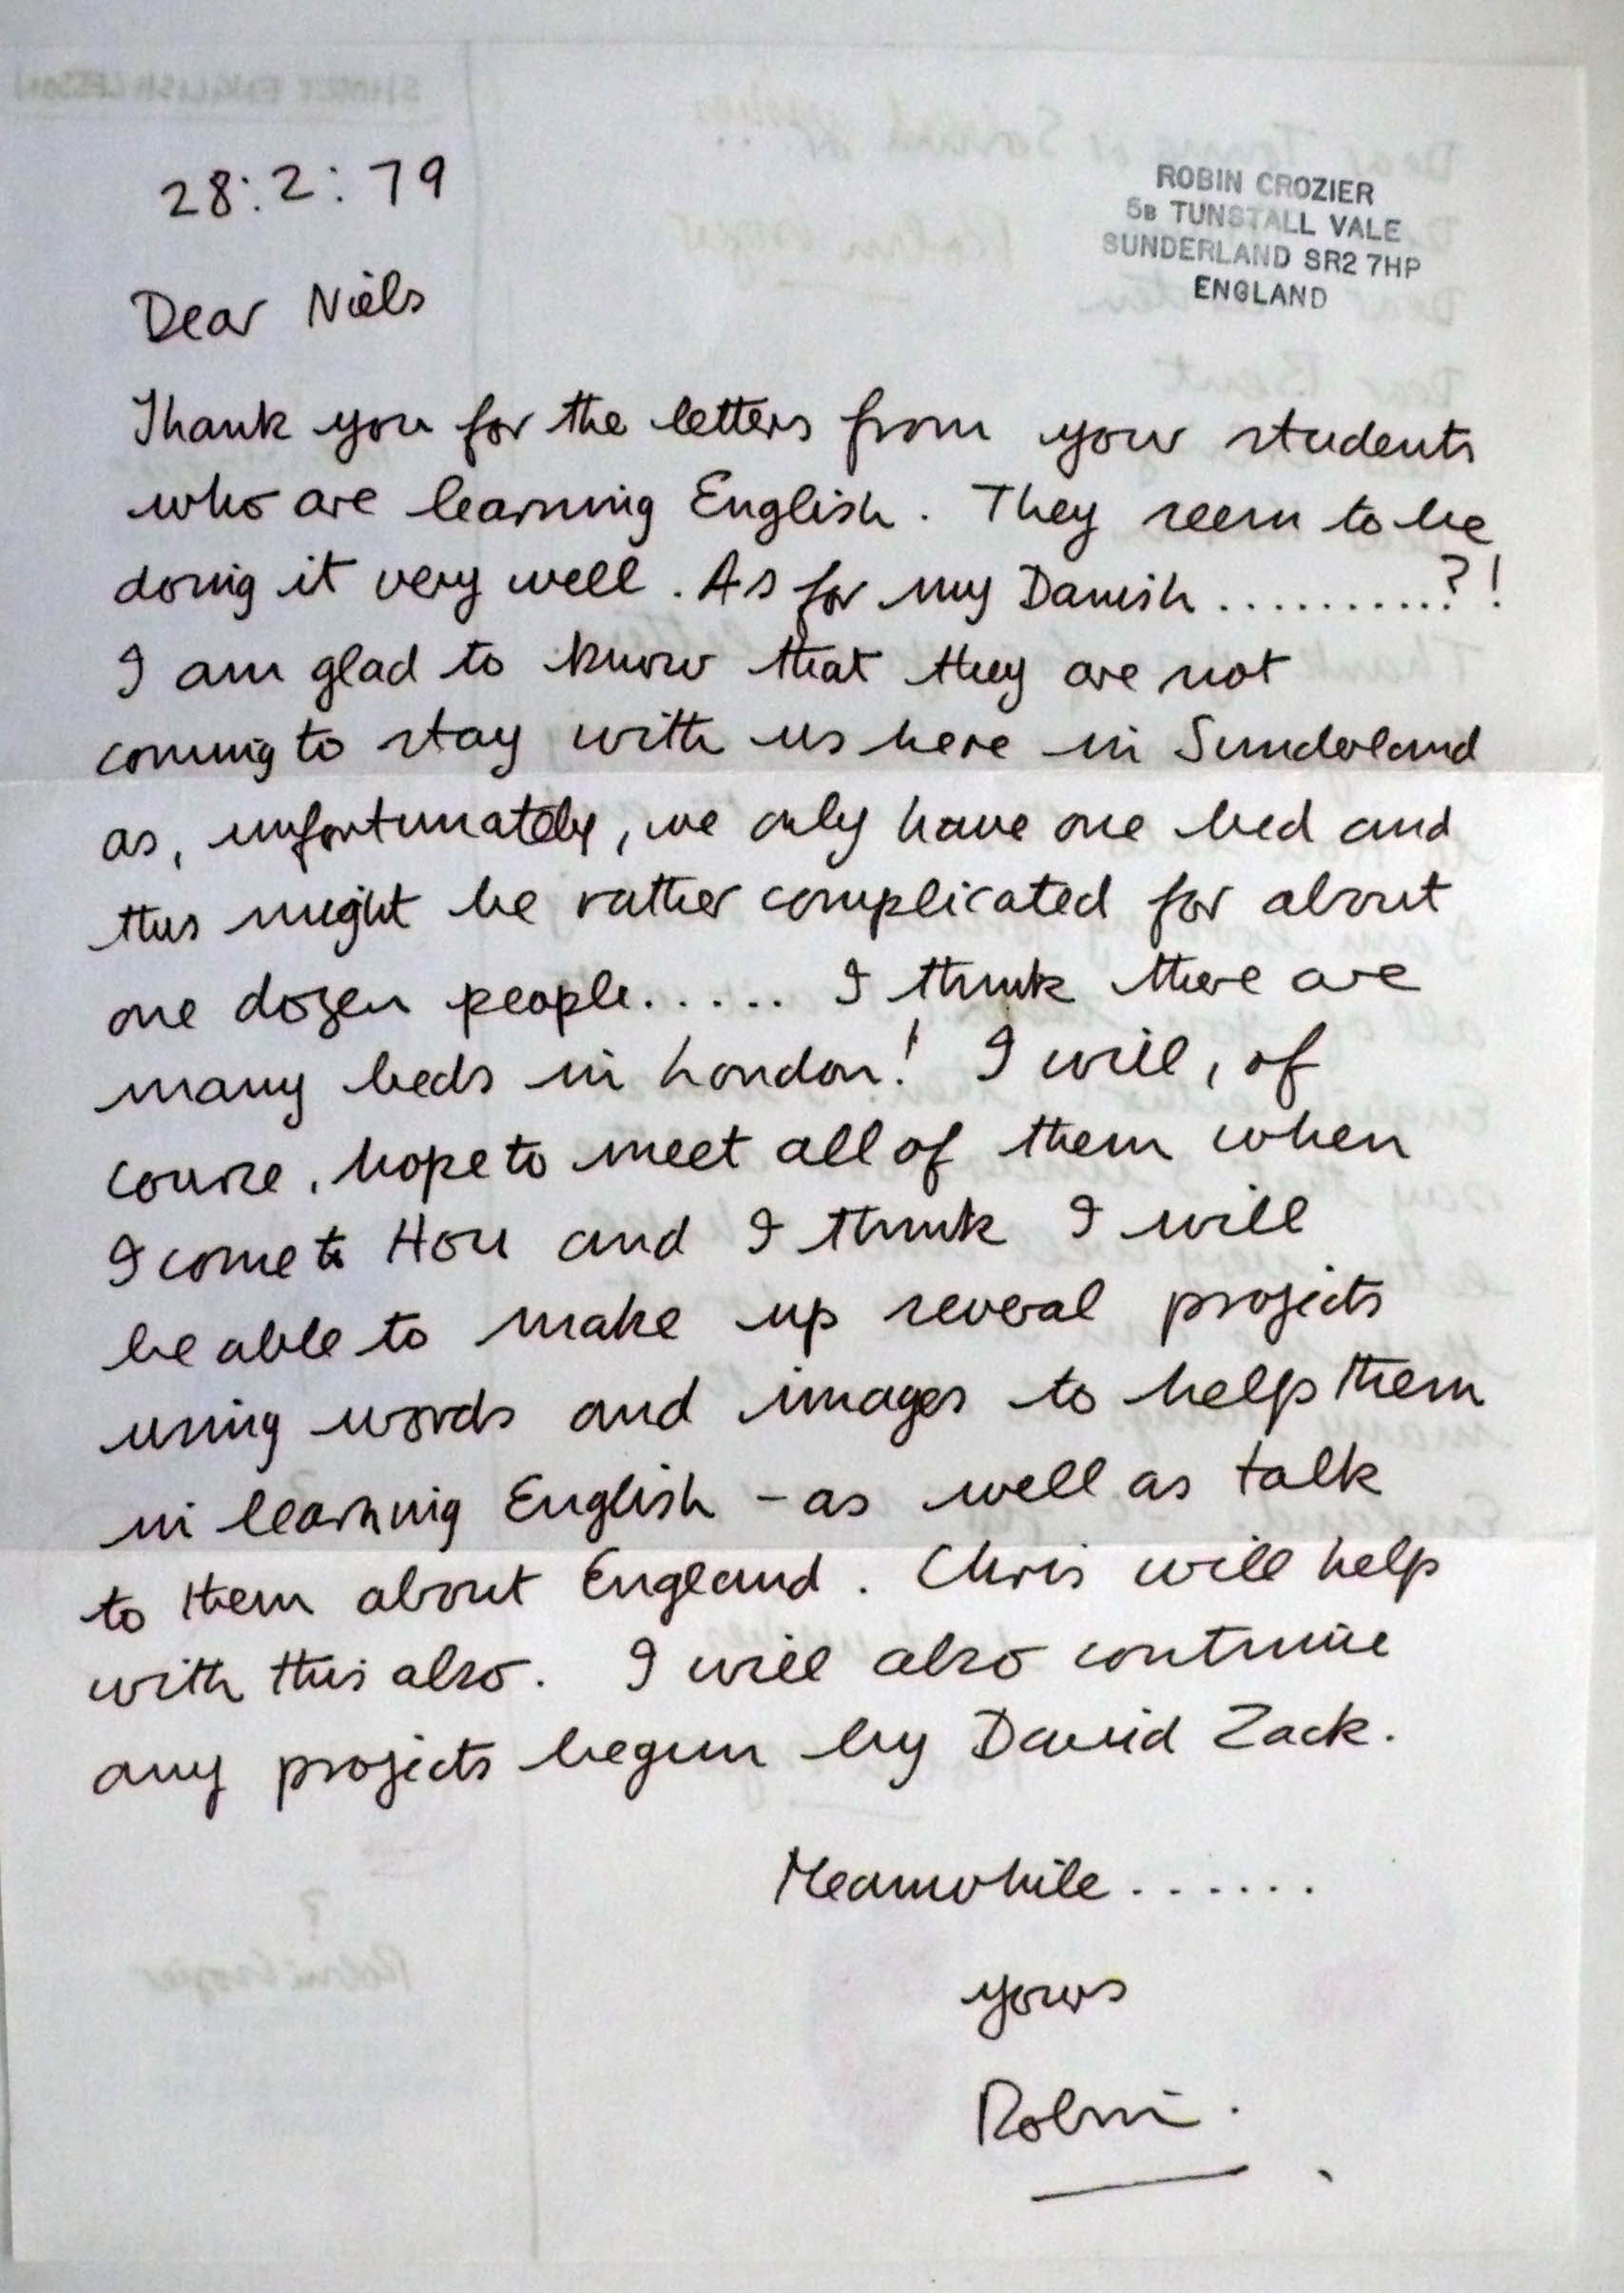 28:2:79
ROBIN CROZIER
5B TUNSTALL VALE
SUNDERLAND SR2 7HP
ENGLAND
Dear Niels
Thank you for the letters from your students
who are learning English. They seem to be
doing it very well. As for my Danish ...........?!
I am glad to know that they are not
coming to stay with us here in Sunderland
as, unfortunately, we only have one bed and
this might be rather complicated for about
one dozen people...... I think there are
many beds in London! I will, of
course, hope to meet all of them when
I come to Hou and I think I will
be able to make up several projects
using words and images to help them
in learning English - as well as talk
to them about England. Chris will help
with this also. I will also continue
any projects begun by David Zack.
Meanwhile.......
yours
Robin.